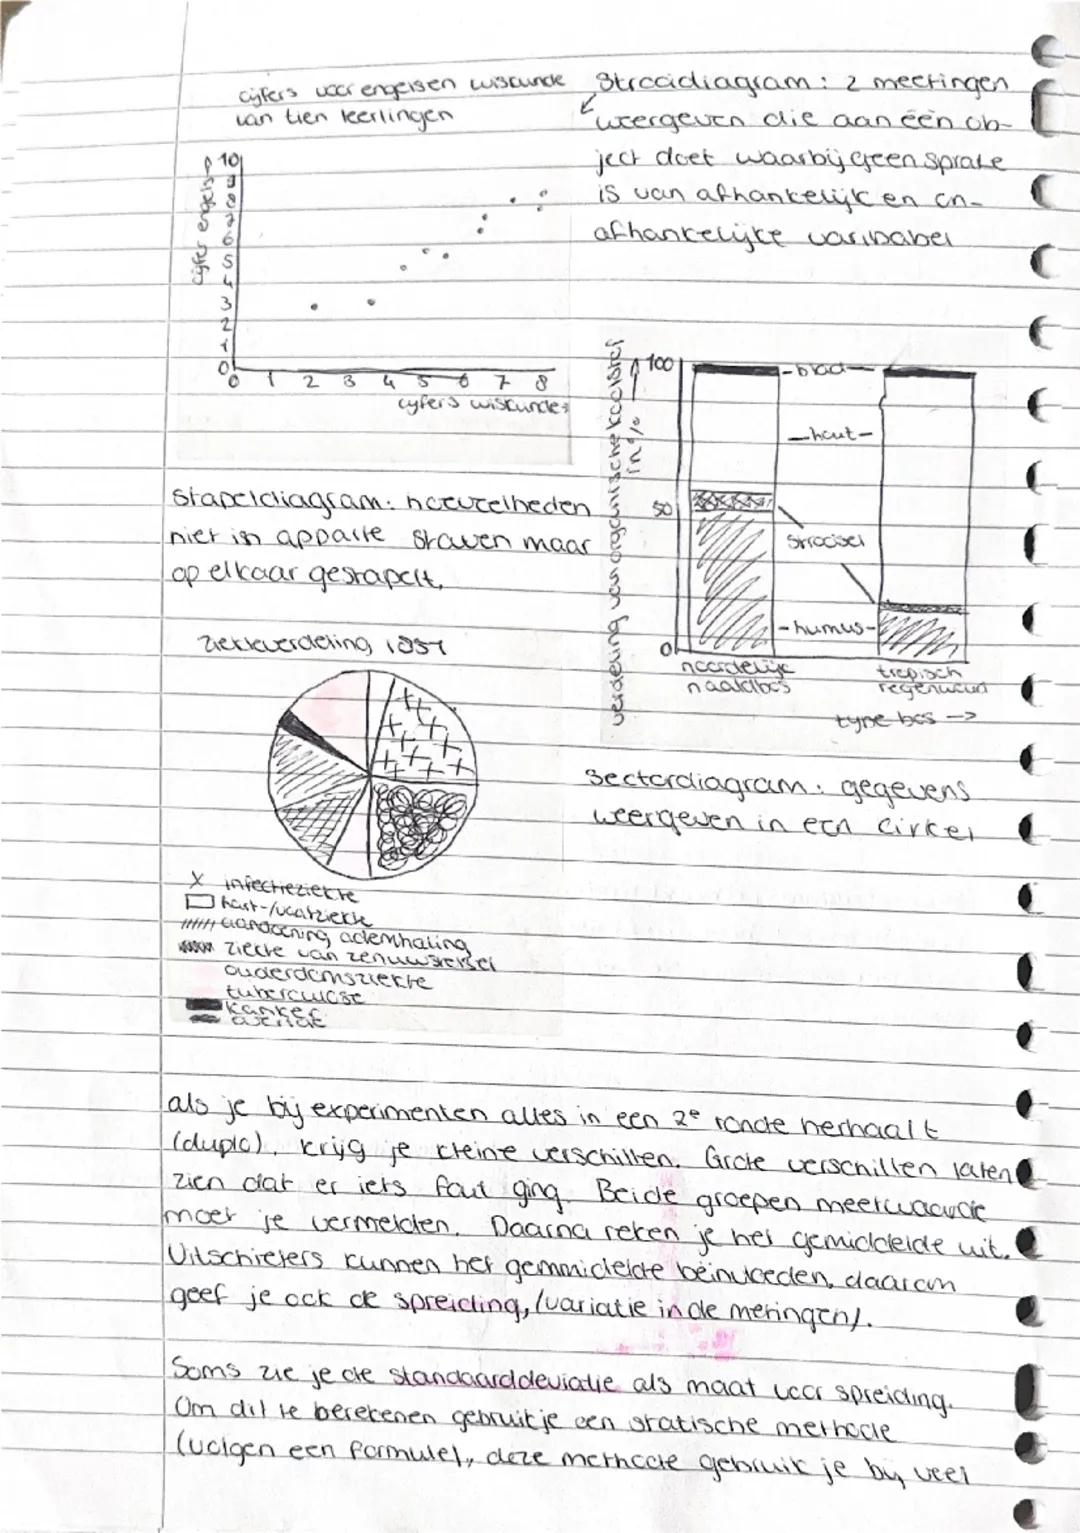 cijfers voor engels en wiskunde
van tien leerlingen
cijfer engels →
10
9
8
7
6
5
4
3
2
1
0
0 1 2 3 4 5 6 7 8
cijfers wiskunde →
Strooidiagram: 2 meetingen
weergeven die aan één ob-
ject doet waarbij geen sprake
is van afhankelijk en on-
afhankelijke varibabel
verdeling van organische koolstof
in % →
100
50
0
-blad-
-hout-
strooisel
-humus-
noordelijk
naaldbos
tropisch
regenwoud
type bos →
Stapeldiagram: hoeveelheden
niet in apparte staven maar
op elkaar gestapelt.
Ziekteverdeling 1957
Sectordiagram: gegevens
weergeven in een cirkel
X infectieziekte
hart-/vaatziekte
aandoening ademhaling
ziekte van zenuwstelsel
ouderdomsziekte
tuberculose
kanker
overige
als je bij experimenten alles in een 2e ronde herhaalt
(duplo), krijg je kleine verschillen. Grote verschillen laten
zien dat er iets fout ging. Beide groepen meetwaarde
moet je vermelden. Daarna reken je het gemiddelde uit.
Uitschieters kunnen het gemmidelde beïnvloeden, daarom
geef je ook de spreiding, (variatie in de metingen).
Soms zie je de standaarddeviatie als maat voor spreiding.
Om dit te berekenen gebruik je een statische methode
(volgen een formule), deze methode gebruik je bij veel